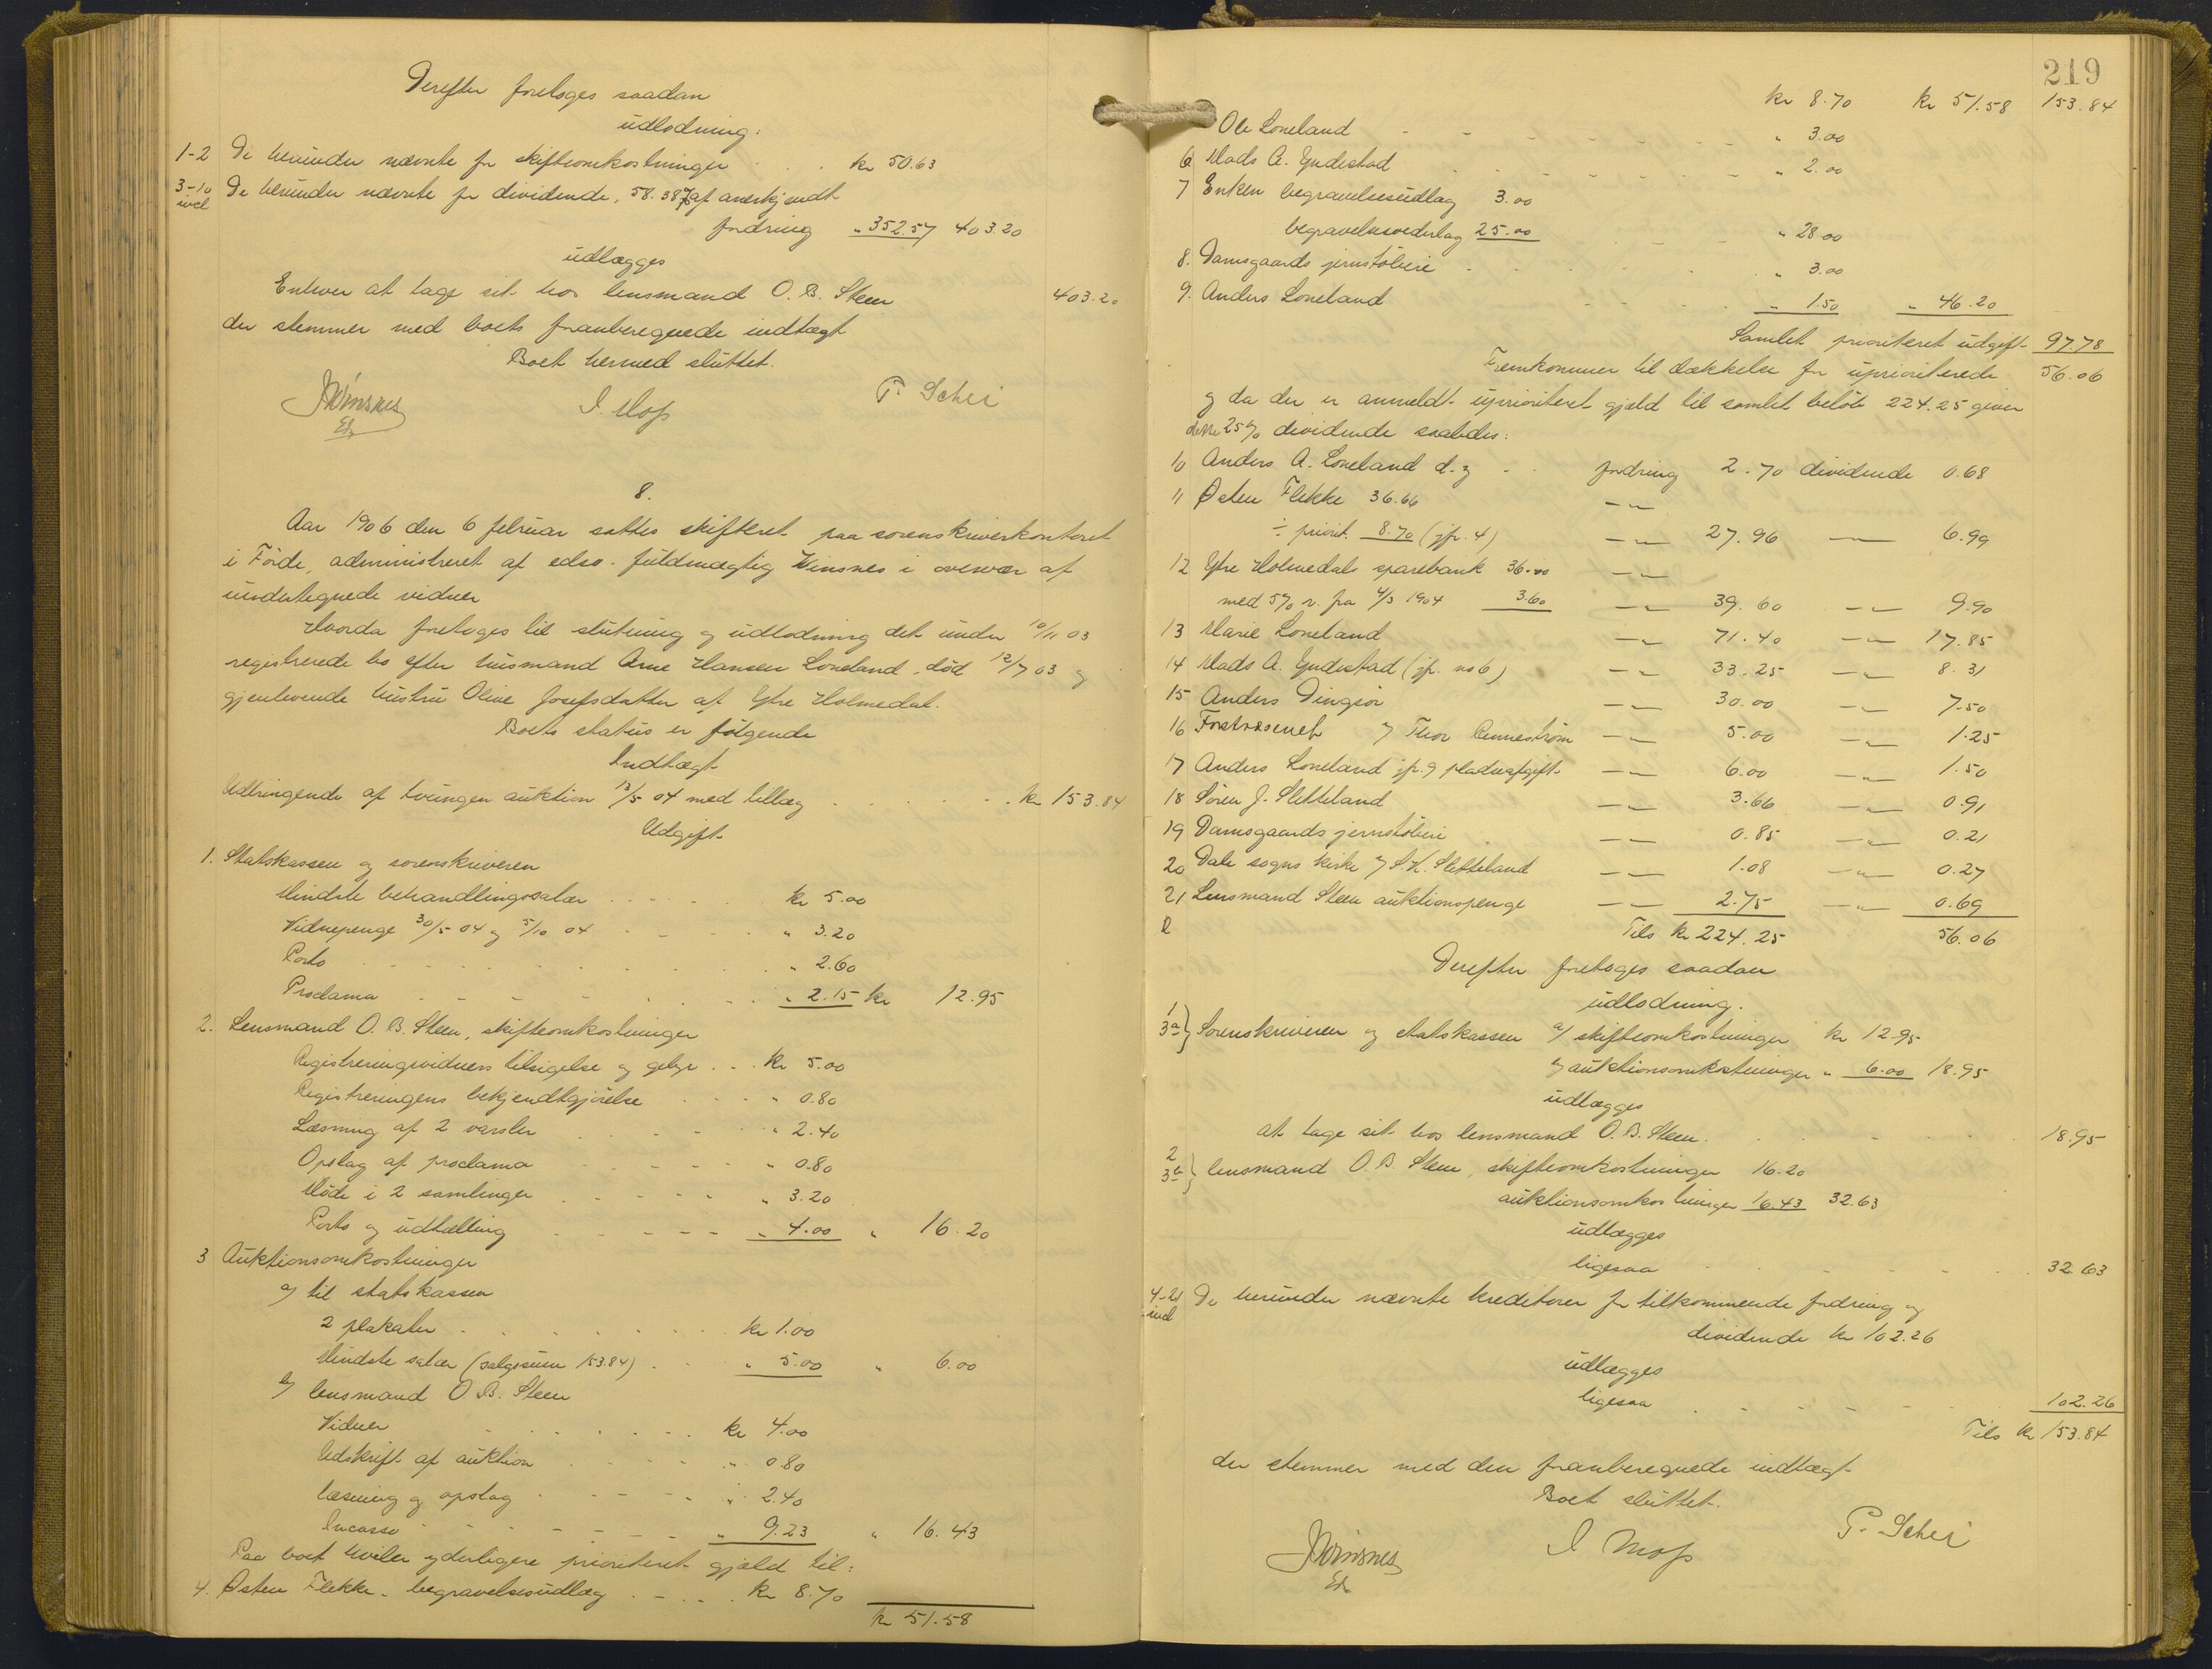 Derefter foretoges saadan
udlodning:
1-2 De herunder nævnte for skifteomkostninger . . kr 50.63
3-10 incl De herunder nævnte for dividende, 58.38% af anerkjendt
fordring " 352.57 403.20
udlægges
Enhver at tage sit hos lensmand O. B. Steen 403.20
der stemmer med boets foranberegnede indtægt
Boet hermed sluttet.
I Moss P. Schei
8.
Aar 1906 den 6 februar sattes skifteret paa sorenskriverkontoret
i Förde, administreret af edsv. fuldmægtig Winsnes i overvær af
undertegnede vidner
Hvorda foretoges til slutning og udlodning det under 10/11 03
registrerede bo efter husmand Arne Hansen Loneland, död 12/7 03 og
gjenlevende hustru Oline Josefsdatter af Ytre Holmedal.
Boets status er følgende
Indtægt
Udbringende af tvungen auktion 13/5 04 med tillæg . . . . . . kr 153.84
Udgift
1. Statskassen og sorenskriveren
Mindste behandlingssalær . . . . . kr 5.00
Vidnepenge 30/5 04 og 5/10 04 . . . . " 3.20
Porto . . . . . . . . " 2.60
Proclama . . . . . . . " 2.15 kr 12.95
2. Lensmand O. B. Steen, skifteomkostninger
Registreringsvidners tilsigelse og gebyr . . . kr 5.00
Registreringens bekjendtgjörelse . . . . " 0.80
Læsning af 2 varsler . . . . . " 2.40
Opslag af proclama . . . . . " 0.80
Möde i 2 samlinger . . . . . " 3.20
Porto og udtælling . . . . . " 4.00 " 16.20
3 Auktionsomkostninger
a) til statskassen
2 plakater . . . . . . . kr 1.00
Mindste salær (salgssum 153.84) . . . " 5.00 " 6.00
b) lensmand O. B. Steen
Vidner . . . . . . kr 4.00
Udskrift af auktion . . . . . " 0.80
læsning og opslag . . . . " 2.40
Incasso . . . . . . " 9.23 " 16.43
Paa boet hviler yderligere prioriteret gjæld til:
4. Østen Flekke - begravelsesudlæg . . . . kr 8.70
kr 51.58
219
kr 8.70 kr 51.58 153.84
Ole Loneland - - - - - - - " 3.00
6 Mads A. Yndestad - - - - - - " 2.00
7 Enken begravelsesudlæg 3.00
begravelsesvederlag 25.00 - - " 28.00
8. Damsgaards jernstöberi - . . . . " 3.00
9. Anders Loneland - - - - " 1.50 " 46.20
Samlet prioriteret udgift 97.78
Fremkommer til dækkelse for uprioriterede 56.06
og da der er anmeldt uprioriteret gjæld til samlet belöb 224.25 giver
dette 25% dividende saaledes:
10 Anders A. Loneland d.y . . fordring 2.70 dividende 0.68
11 Østen Flekke 36.66 —"—
÷ priorit. 8.70 (jfr. 4) —"— 27.96 —"— 6.99
12 Ytre Holmedals sparebank 36.00 —"—
med 5% r. fra 4/3 1904 3.60 —"— 39.60 —"— 9.90
13 Marie Loneland —"— 71.40 —"— 17.85
14 Mads A. Yndestad (jfr. no 6) —"— 33.25 —"— 8.31
15 Anders Dingsör —"— 30.00 —"— 7.50
16 Forstvæsenet v/ Thor —"— 5.00 —"— 1.25
17 Anders Loneland jfr. 9 pladsafgift —"— 6.00 —"— 1.50
18 Sören J. Sletteland —"— 3.66 —"— 0.91
19 Damsgaards jernstöberi —"— 0.85 —"— 0.21
20 Dale sogns kirke v/ S. K. Sletteland —"— 1.08 —"— 0.27
21 Lensmand Steen auktionspenge —"— 2.75 —"— 0.69
Tils kr 224.25 56.06
Derefter foretoges saadan
udlodning.
1 3a} Sorenskriveren og statskassen a/ skifteomkostninger kr 12.95
b/ auktionsomkostninger " 6.00 18.95
udlægges
at tage sit hos lensmand O. B. Steen. . . . . . 18.95
2 3b} lensmand O. B. Steen, skifteomkostninger 16.20
auktionsomkostninger 16.43 32.63
udlægges
ligesaa . . . . . . 32.63
4-21 incl De herunder nævnte kreditorer for tilkommende fordring og
dividende kr 102.26
udlægges
ligesaa . . . . . 102.26
Tils kr 153.84
der stemmer med den foranberegnede indtægt
Boet sluttet.
I Moss P. Schei